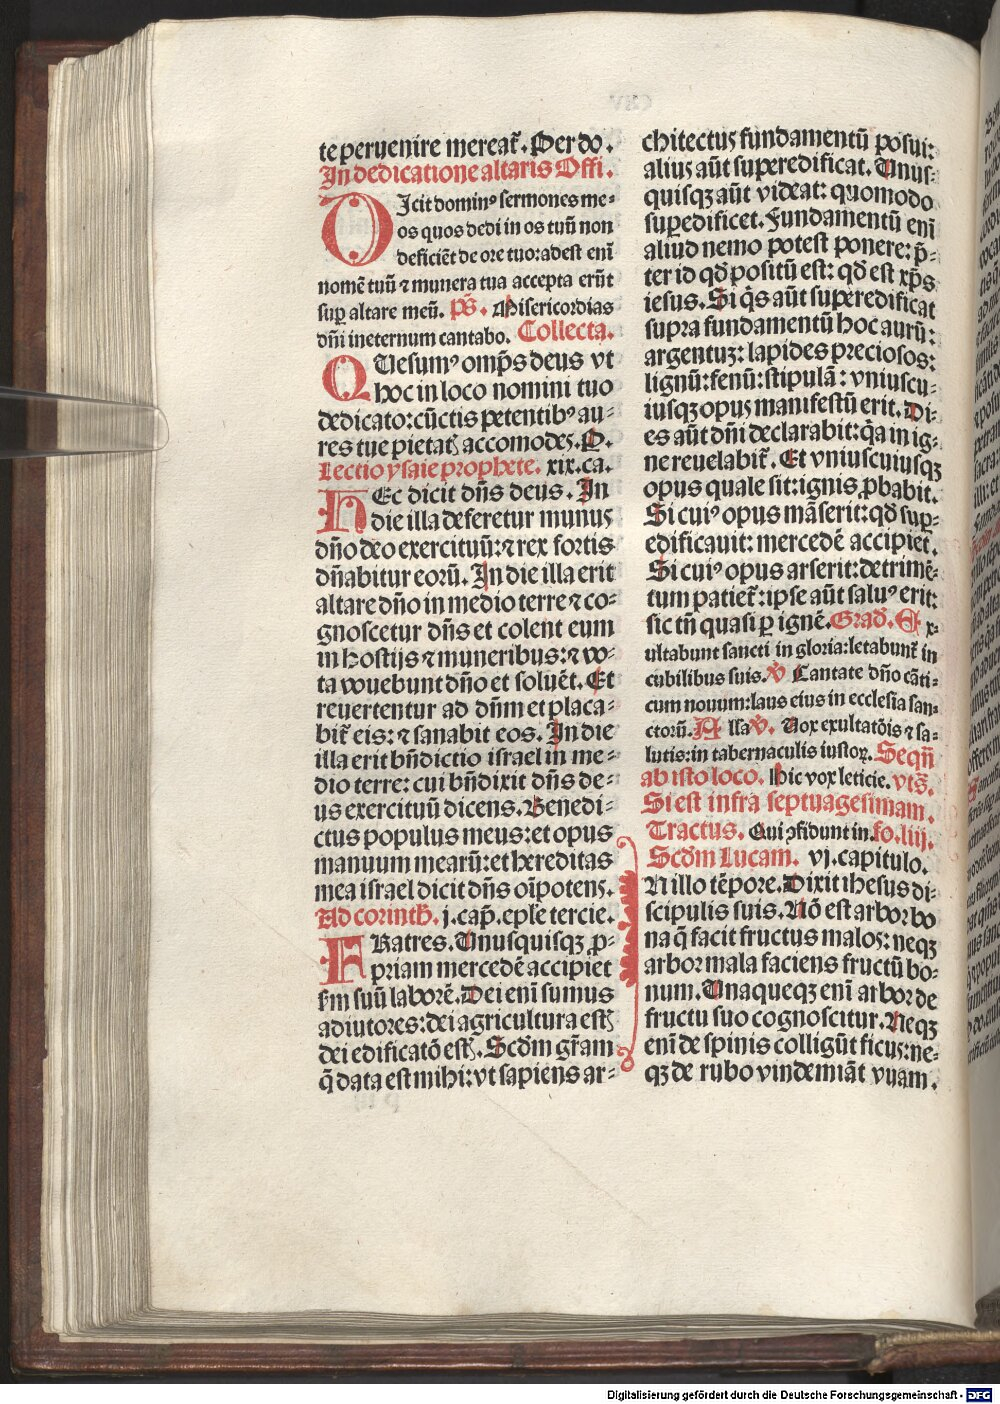 te peruenire mereat᷑. Per do.
In dedicatione altaris Offi.
DIcit dominꝰ sermones me⸗
os quos dedi in os tuū non
deficiēt de ore tuo: adest enī
nomē tuū ⁊ munera tua accepta erūt
suꝑ altare meū. p̄s. Misericordias
dn̄i ineternum cantabo. Collecta.
QUesumꝰ omp̄s deus vt
hoc in loco nomini tuo
dedicato: cūctis petentibꝰ au⸗
res tue pietatꝭ accomodes. P.
Lectio ysaie prophete. xix. ca.
HEc dicit dn̄s deus. In
die illa deferetur munus
dn̄o deo exercituū: ⁊ rex fortis
dn̄abitur eorū. In die illa erit
altare dn̄o in medio terre ⁊ co⸗
gnoscetur dn̄s et colent eum
in hostijs ⁊ muneribus: ⁊ vo⸗
ta vouebunt dn̄o et soluēt. Et
reuertentur ad dn̄m et placa⸗
bit᷑ eis: ⁊ sanabit eos. In die
illa erit bn̄dictio israel in me⸗
dio terre: cui bn̄dixit dn̄s de⸗
us exercituū dicens. Benedi⸗
ctus populus meus: et opus
manuum mearū: et hereditas
mea israel dicit dn̄s oīpotens.
Ad corinth. j. cap̄. ep̄le tercie.
FRatres. Unusquisqꝫ ꝓ⸗
priam mercedē accipiet
sm̄ suū laborē. Dei enī sumus
adiutores: dei agricultura estꝭ
dei edificatō estꝭ. Scd̄m gr̄am
q̄ data est mihi: vt sapiens ar⸗
chitectus fundamentū posui:
alius aūt superedificat. Unus⸗
quisqꝫ aūt videat: quomodo
suꝑedificet. Fundamentū enī
aliud nemo potest ponere: p̄⸗
ter id qd̄ positū est: qd̄ est xp̄s
iesus. Si q̇s aūt superedificat
supra fundamentū hoc aurū:
argentuꝫ: lapides preciosos:
lignū: fenū: stipulā: vniuscu⸗
iusqꝫ opus manifestū erit. Di⸗
es aūt dn̄i declarabit: q̄a in ig⸗
ne reuelabit᷑. Et vniuscuiusqꝫ
opus quale sit: ignis ꝓbabit.
Si cuiꝰ opus māserit: qd̄ suꝑ⸗
edificauit: mercedē accipiet.
Si cuiꝰ opus arserit: detrimē⸗
tum patiet᷑: ipse aūt saluꝰ erit:
sic tn̄ quasi ꝑ ignē. Grad. Ex⸗
ultabunt sancti in gloria: letabunt᷑ in
cubilibus suis. V̄ Cantate dn̄o cāti⸗
cum nouum: laus eius in ecclesia san⸗
ctorū. Alla V̄. Uox exultatōis ⁊ sa⸗
lutis: in tabernaculis iustoꝝ. Seqn̄
ab isto loco. Hic vox leticie. vts̄.
Si est infra septuagesimam.
Tractus. Qui ꝯfidunt in. fo. liij.
Scd̄m Lucam. vj. capitulo.
IN illo tēpore. Dixit ihesus di⸗
scipulis suis. Nō est arbor bo
na q̄ facit fructus malos: neqꝫ
arbor mala faciens fructū bo⸗
num. Unaqueqꝫ enī arbor de
fructu suo cognoscitur. Neqꝫ
enī de spinis colligūt ficus: ne⸗
qꝫ de rubo vindemiāt vuam.
Digitalisierung gefördert durch die Deutsche Forschungsgemeinschaft - DFG